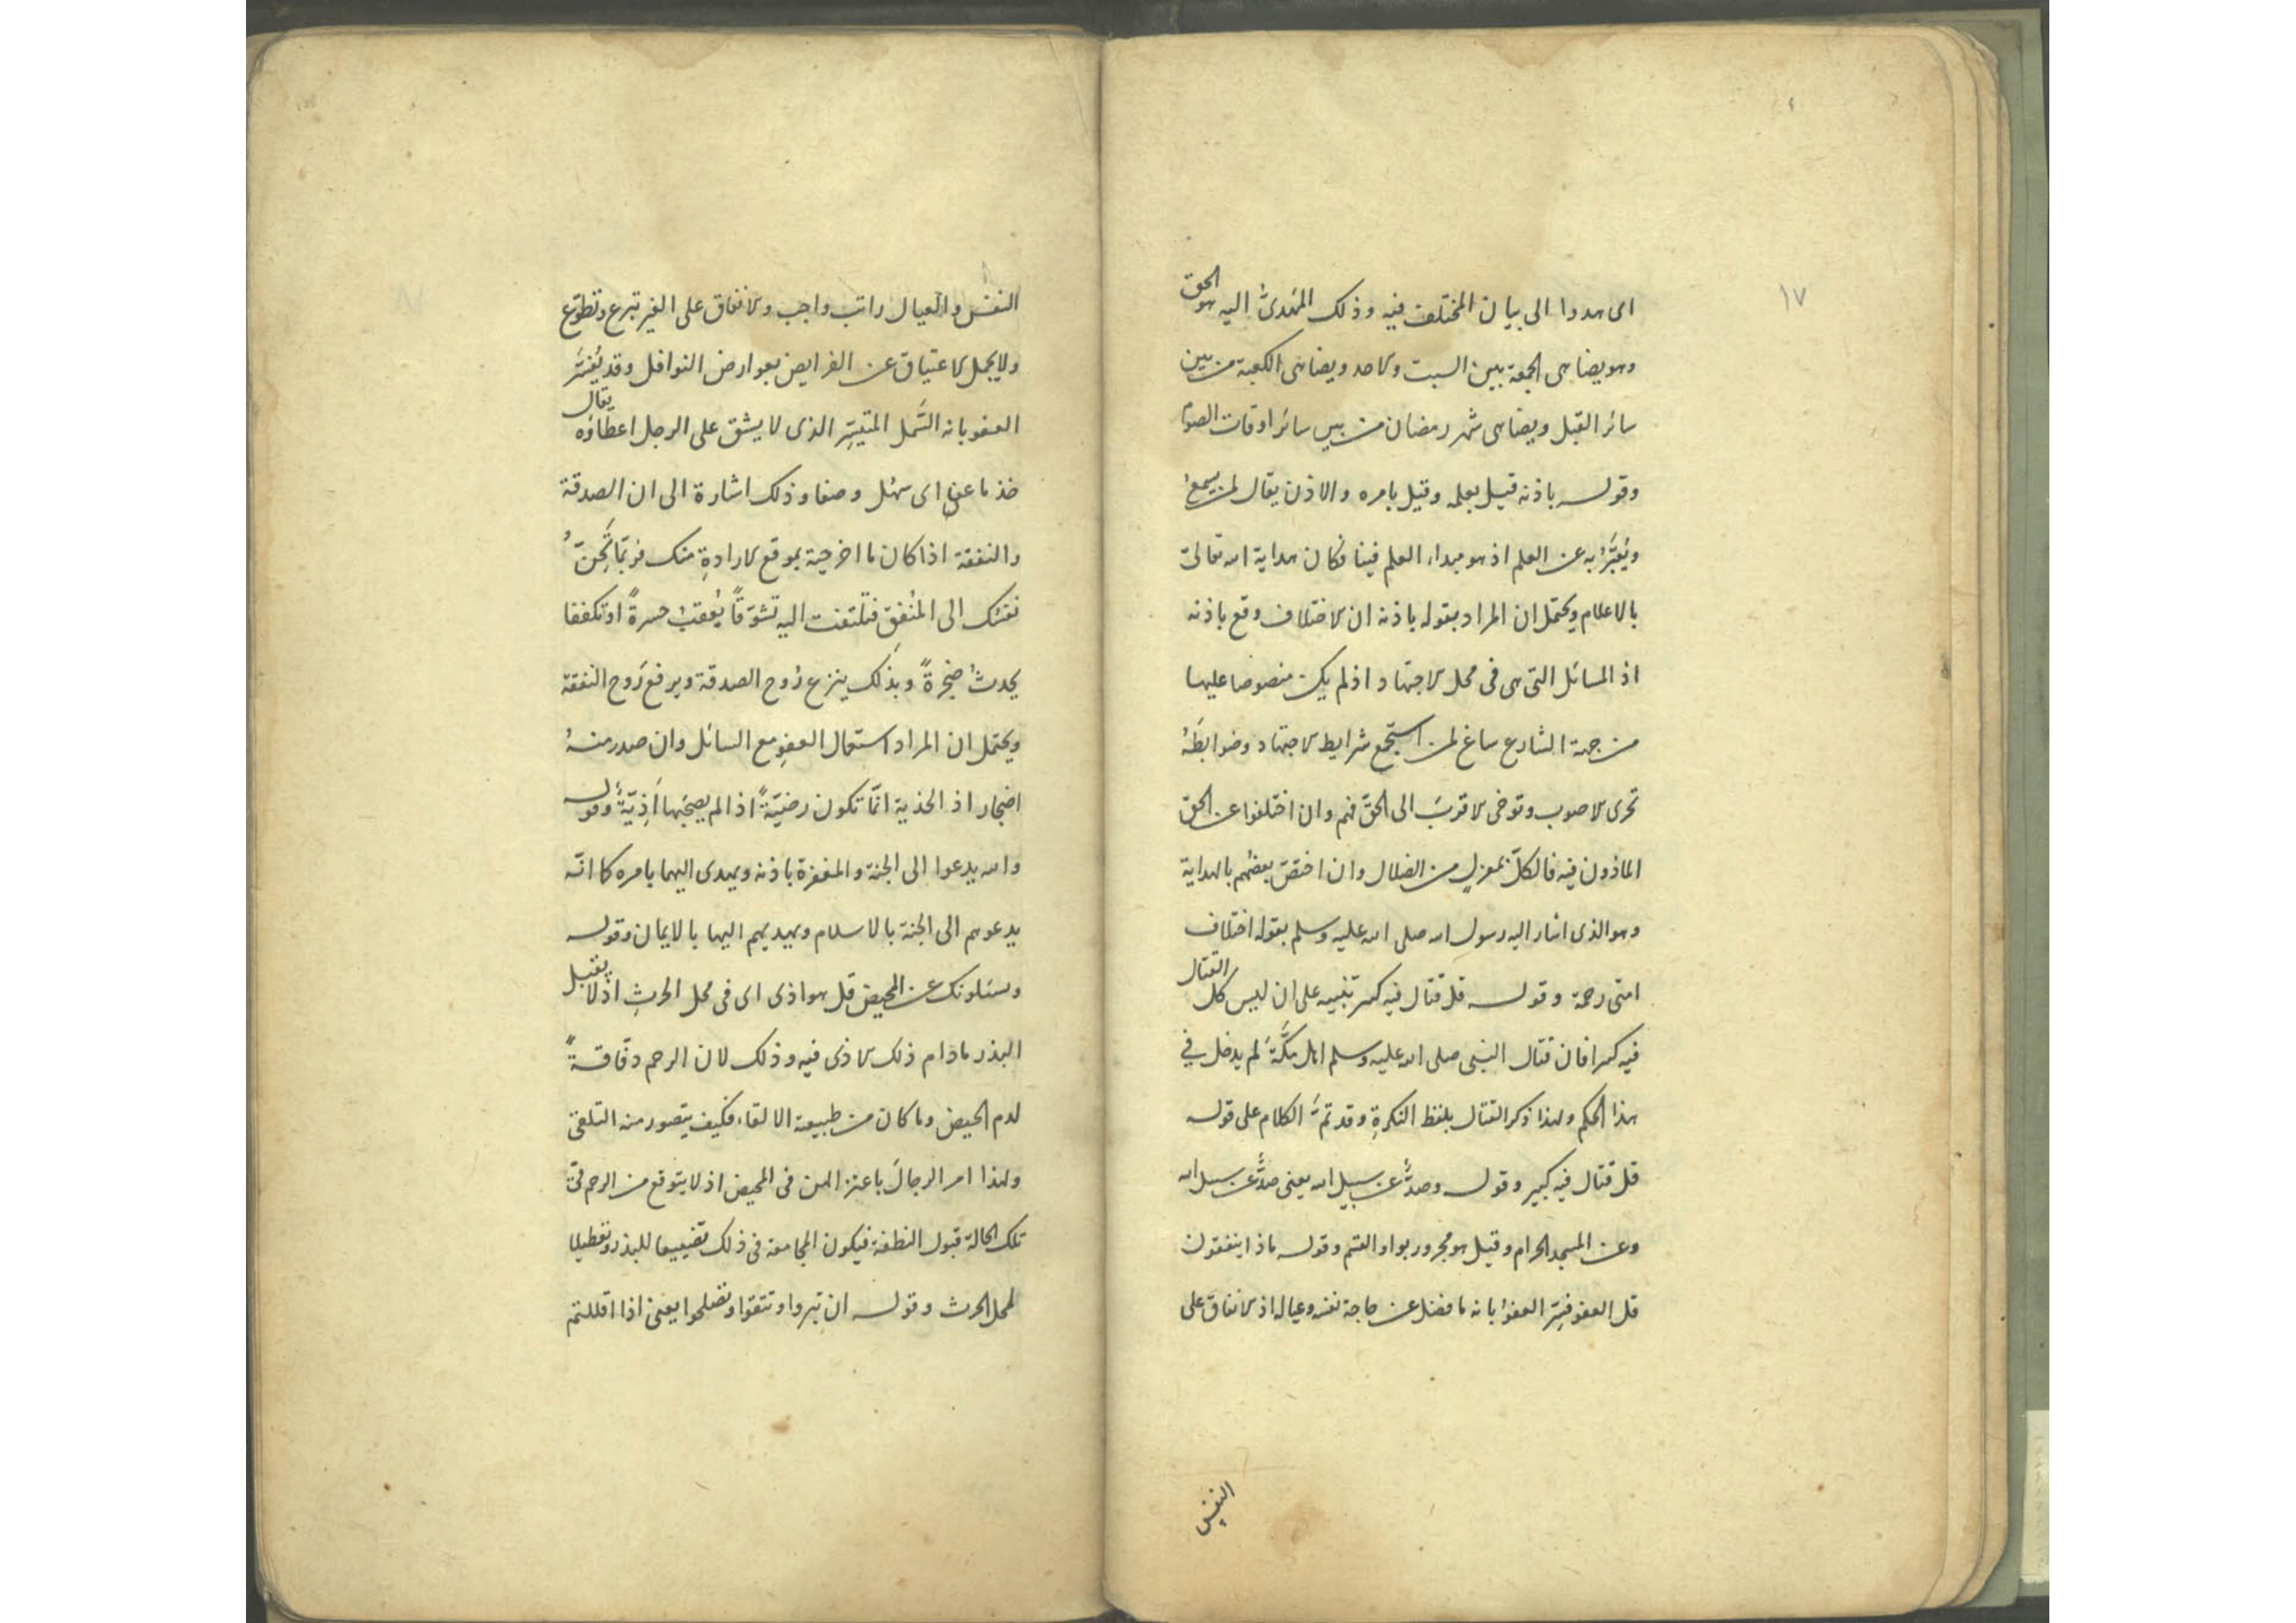 ١٧
اى هدوا الى بيان المختلف فيه وذلك المهدىُّ اليه هو الحق
وهو يضاهى الجمعة بين السبت والاحد ويضاهى الكعبة من بين
سائر القبل ويضاهى شهر رمضان من بين سائر اوقات الصوم
وقوله باذنه قيل بعلمه وقيل بامره والاذن يقال لمن يسمع
ويُعبَّرُ به عن العلم اذ هو مبداء العلم فينا فكان هداية الله تعالى
بالاعلام ويحتمل ان المراد بقوله باذنه ان الاختلاف وقع باذنه
اذ المسائل التى هى فى محل الاجتهاد اذ لم يكن منصوصا عليها
من جهة الشارع ساغ لمن استجمع شرايط الاجتهاد وضوابطَهُ
تحرى الاصوب وتوخى الاقرب الى الحقّ فهم وان اختلفوا عن الحق
الماذون فيه فالكلّ بمعزلٍ من الضلال وان اختصّ بعضهم بالهداية
وهو الذى اشار اليه رسول الله صلى الله عليه وسلم بقوله اختلاف
امتى رحمة وقوله قل قتال فيه كبير تنبيه على ان ليس كل القتال
فيه كبيرا فان قتال النبى صلى الله عليه وسلم اهل مكَّةَ لم يدخل في
هذا الحكم ولهذا ذكر القتال بلفظ النكرةِ وقد تمَّ الكلام على قوله
قل قتال فيه كبير وقوله وصدٌّ عن سبيل الله يعنى صدٌّ عن سبيل الله
وعن المسجد الحرام وقيل هو مجرور بواو القسم وقوله ماذا ينفقون
قل العفو فسِّر العفوُ بانه ما فضل عن حاجة نفسه وعياله اذ الانفاق على
النفس
النفس والعيال راتب واجب والانفاق على الغير تبرع وتطوّع
ولا يحمل الاعتياق عن الفرايض بعوارض النوافل وقد يُفسَّر
العفو بانه السَّهل المتيسِّر الذى لا يشق على الرجل اعطاؤه يقال
خذ ما عفى اى سهُل وصفا وذلك اشارة الى ان الصدقة
والنفقة اذا كان ما اخرجته بموقع الارادةِ منك فربّما تَحِنّ
نفسُك الى المُنْفَق فتلتفت اليه تشوّقاً يُعقبُ حسرةً او تكففا
يحدثُ ضجرةً وبذلك ينزع رُوح الصدقة ويرفع رَوح النفقة
ويحتمل ان المراد استعمال العفوِ مع السائل وان صدر منهُ
اضجار اذ الحذية انّما تكون رضيّةً اذا لم يصحبها اَذِيّةٌ وقوله
والله يدعوا الى الجنة والمغفرة باذنه ويهدى اليهما بامره كما انّه
يدعوهم الى الجنة بالاسلام ويهديهم اليها بالايمان وقوله
ويسئلونك عن المحيض قل هو اذى اى فى محل الحرثِ اذ لا يقبل
البذر مادام ذلك الاذى فيه وذلك لان الرحم دفّاقةً
لدم الحيض وما كان من طبيعته الالقاء فكيف يتصور منه التلقى
ولهذا امر الرجالَ باعتزالهن فى المحيض اذ لا يتوقع من الرحم فى
تلك الحالة قبول النطفة فيكون المجامعة فى ذلك تضييعا للبذر وتعطيلا
لمحل الحرث وقوله ان تبروا وتتقوا وتصلحوا يعنى اذا اقللتم